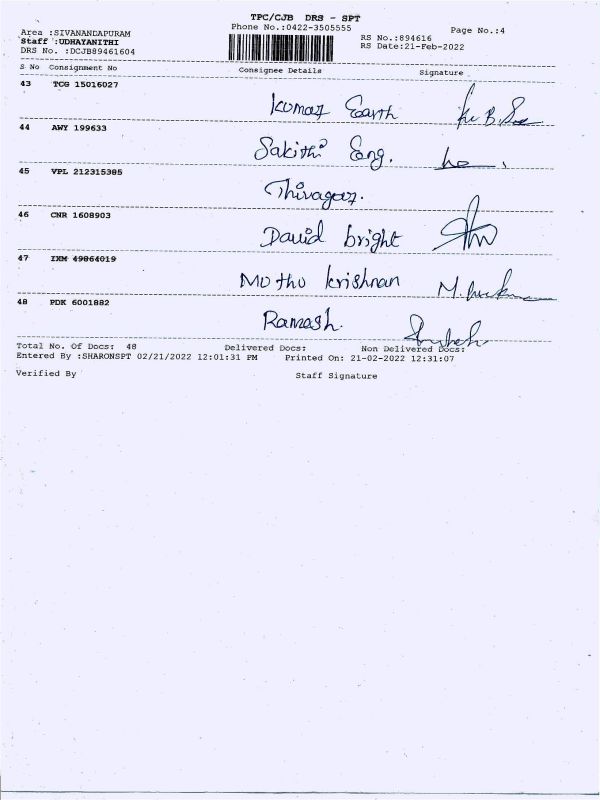 TPC/CJB DRS - SPT
Phone No.:0422-3505555
Page No.:4
Area :SIVANANDAPURAM
Staff :UDHAYANITHI
DRS No. :DCJB89461604
RS No.:894616
RS Date:21-Feb-2022
S No Consignment No Consignee Details Signature
43 TCG 15016027
Kumar Earth
44 AWY 199633
Sakithi Eng.
45 VPL 212315385
Thivagar.
46 CNR 1608903
David bright
47 IXM 49864019
Muthu krishnan
48 PDK 6001882
Ramesh.
Total No. Of Docs: 48 Delivered Docs: Non Delivered Docs:
Entered By :SHARONSPT 02/21/2022 12:01:31 PM Printed On: 21-02-2022 12:31:07
Verified By Staff Signature